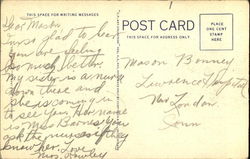 THIS SPACE FOR WRITING MESSAGES
POST CARD
THIS SPACE FOR ADDRESS ONLY
PLACE
ONE CENT
STAMP
HERE
Dear
so glad to hear
you are feeling
so much better.
My sister is a nurse
down there and
she is coming in
to see you. Her name
is Miss you
ask the nurses if they
know her. Love
Mrs.
Mason Bonney
Lawrence Hospital
New London
Conn